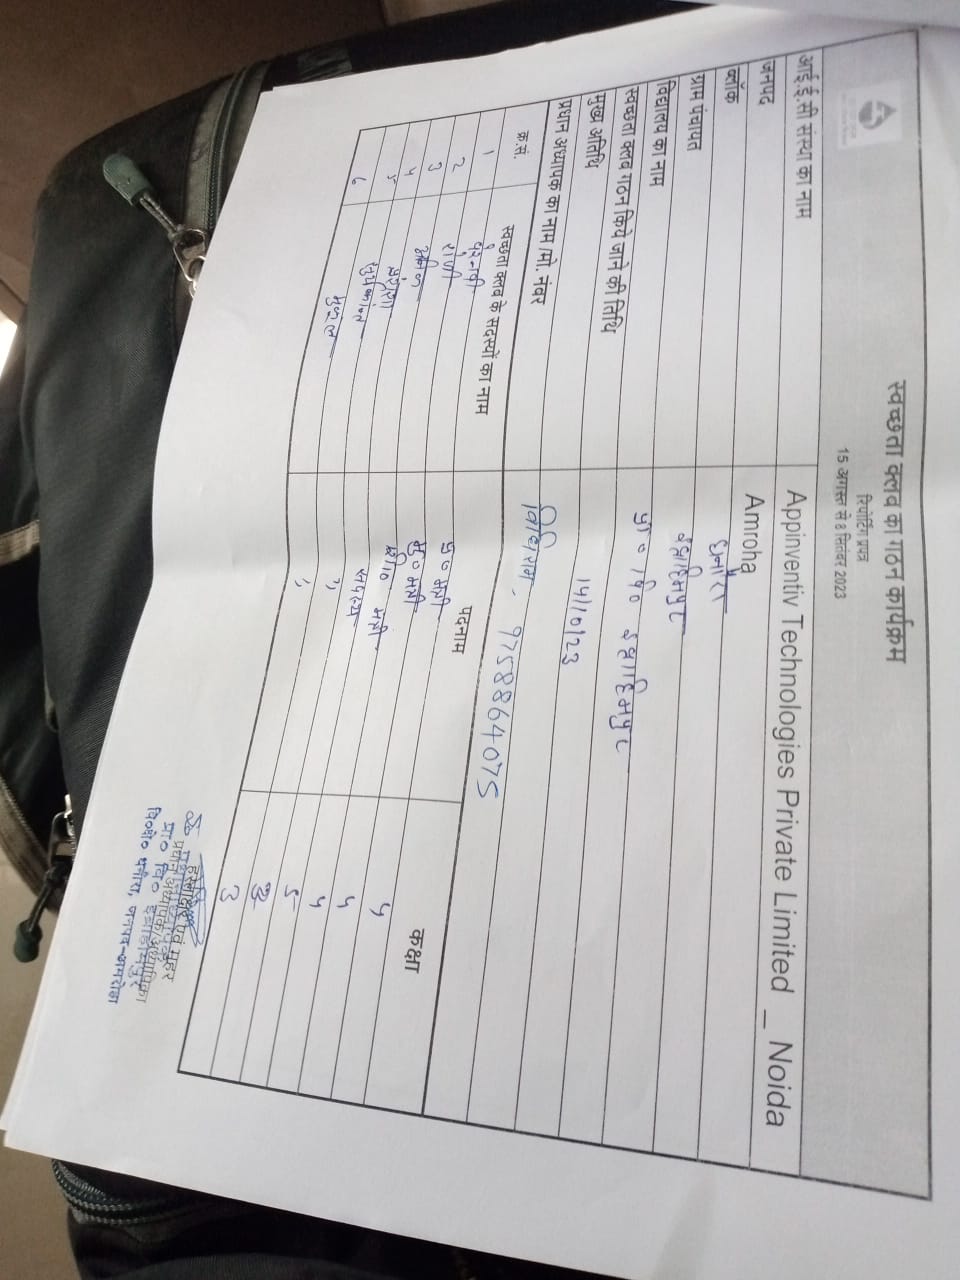 स्वच्छता क्लब का गठन कार्यक्रम
रिपोर्टिंग प्रपत्र
15 अगस्त से 8 सितंबर 2023
आई.ई.सी संस्था का नाम Appinventiv Technologies Private Limited _ Noida
जनपद Amroha
ब्लॉक धनौरा
ग्राम पंचायत इब्राहिमपुर
विद्यालय का नाम प्रा० वि० इब्राहिमपुर
स्वच्छता क्लब गठन किये जाने की तिथि 14/10/23
मुख्य अतिथि
प्रधान अध्यापक का नाम /मो. नंबर विधिराम, 9758864075
क्र.सं. स्वच्छता क्लब के सदस्यों का नाम पदनाम कक्षा
१ प्र० मंत्री ५
२ मंत्री ५
३ मंत्री ५
४ सदस्य 5
५ ,,
६ ,, 3
हस्ताक्षर एवं मुहर
प्रधान अध्यापक/अध्यापिका
प्रा० वि० इब्राहीमपुर
वि०क्षे० धनौरा, जनपद-अमरोहा